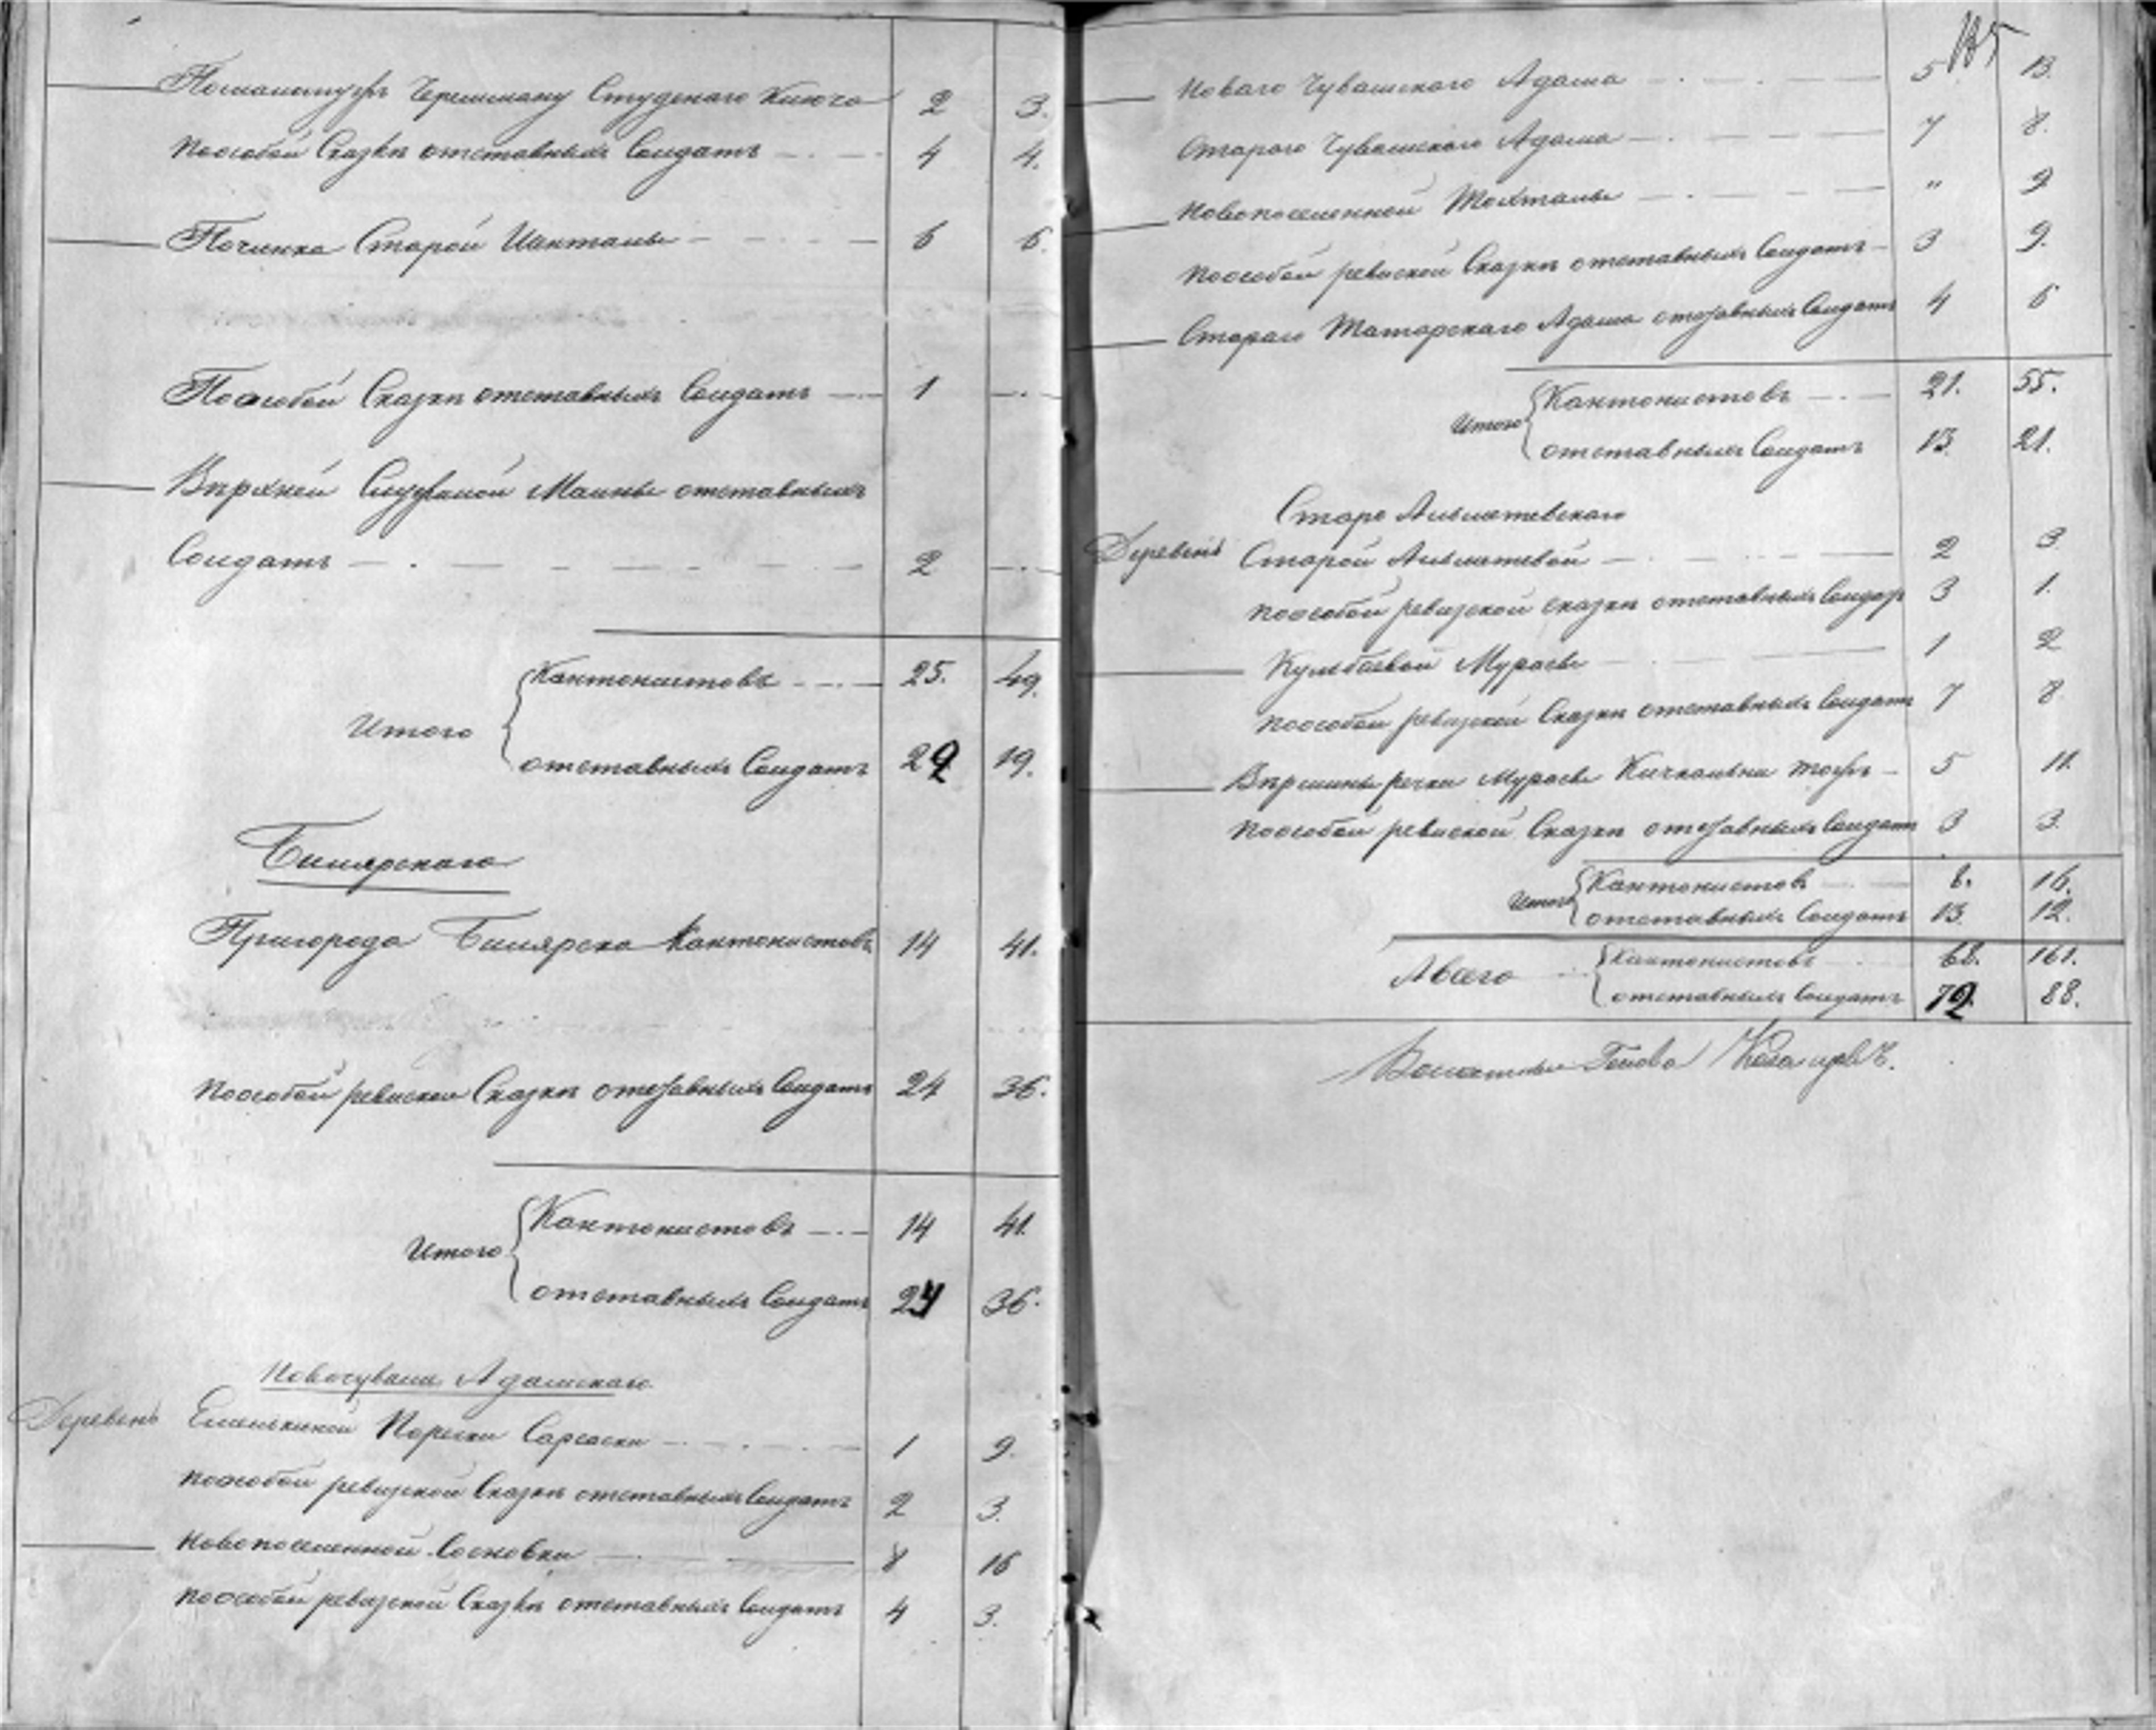 Потомутужъ Черемшану Студенаго Ключа 2 3.
Поособой Сказкѣ отставныхъ Солдатъ 4 4.
Починка Старой Иштаны 6 6.
Поособой Сказкѣ отставныхъ Солдатъ 1 —
Вѣрхней Маины отставныхъ
Солдатъ 2 —
Итого
Кантонистовъ 25. 49.
отставныхъ Солдатъ 22 19.
Билярскаго
Пригорода Билярска Кантонистовъ 14 41.
Поособой ревиской Сказкѣ отставныхъ Солдатъ 24 36.
Итого
Кантонистовъ 14 41.
отставныхъ Солдатъ 24 36.
Новочуваш. Адамскаго
Деревень Емелькиной 1 9.
поособой ревизской Сказкѣ отставныхъ Солдатъ 2 3.
Новопоселенной Сосновки 8 16
поособой ревизской Сказкѣ отставныхъ Солдатъ 4 3.
Новаго Чувашскаго Адама 5 13.
Стараго Чувашскаго Адама 7 8.
Новопоселенной " 9
Поособой ревиской Сказкѣ отставныхъ Солдатъ 3 9.
Стараго Татарскаго Адама отставныхъ Солдатъ 4 6
Итого
Кантонистовъ 21. 55.
отставныхъ Солдатъ 13. 21.
Старо Альметевскаго
Деревень Старой Альметевой 2 3
поособой ревизской сказкѣ отставныхъ Солдатъ 3 1.
Кульбаевой Мурасы 1 2
поособой ревизской Сказкѣ отставныхъ Солдатъ 7 8.
Вѣршины речки Мурасы 5 11.
поособой ревиской Сказкѣ отставныхъ Солдатъ 3 3.
Итого
Кантонистовъ 8. 16.
отставныхъ Солдатъ 13. 12.
Авсего
Кантонистовъ 68. 161.
отставныхъ Солдатъ 72. 88.
Волостный Голова